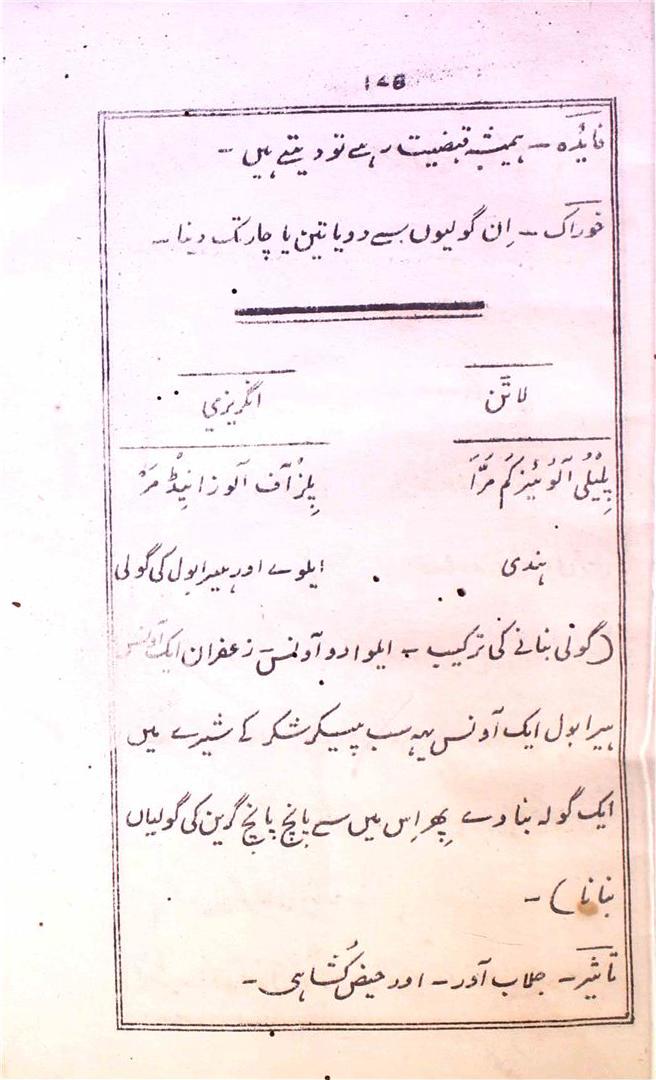 ۱۴۵
فایدہ ـ ہمیشہ قبضیت رہے تو دیتے ہیں ـ
خوراک ـ اِن گولیوں سے دو یا تین یا چار تک دینا ـ
لاتن انگریزي
پِلیُلی آلوئیز کم مَرّا پِلز آف آلوز اینڈ مَر
ہندی ایلوے اور ہیرابول کی گولی
(گولی بنانے کی ترکیب ـ ایلوا دو آونس زعفران ایک آونس
ہیرابول ایک آونس یہہ سب پیسکر شکر کے شیرے میں
ایک گولہ بناوے پِھر اِس میں سے پانچ پانچ گرین کی گولیاں
بنانا) ـ
تاثیر ـ جلاب آور ـ اور حیض کُشا ہی ـ